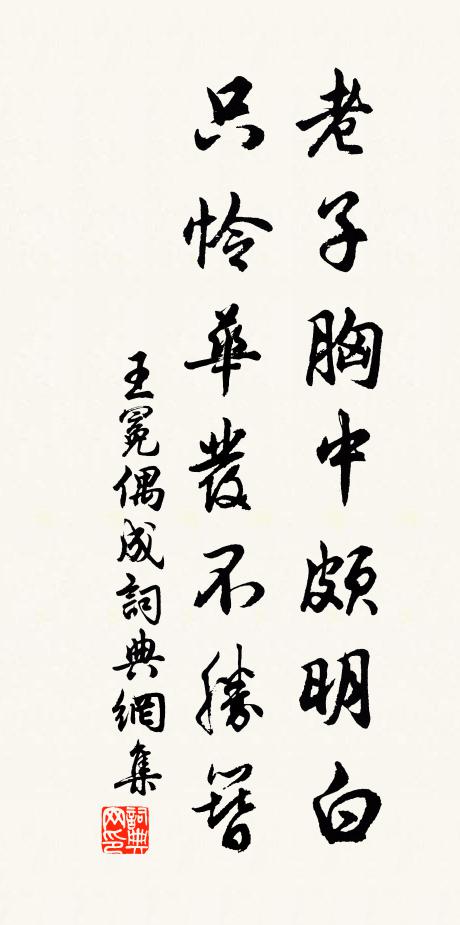 老子胸中頗明白
只憐華發不勝簪
王冕偶成詞典網集
詞典网印